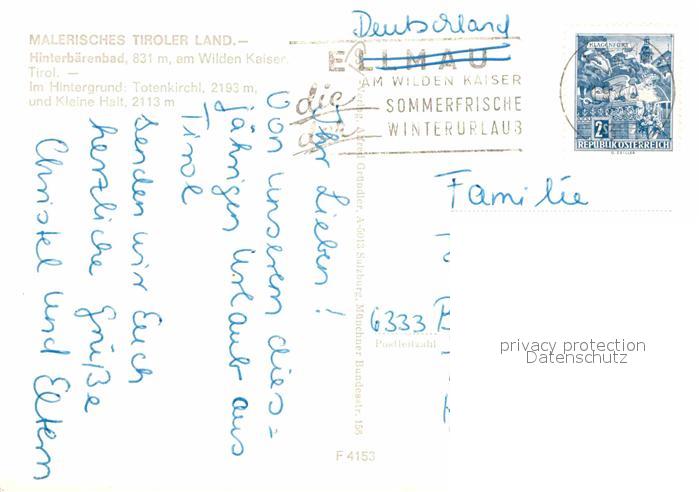 MALERISCHES TIROLER LAND.—
Hinterbärenbad, 831 m, am Wilden Kaiser.
Tirol. —
Im Hintergrund: Totenkirchl, 2193 m,
und Kleine Halt, 2113 m
Deutschland
ELLMAU
AM WILDEN KAISER
die
SOMMERFRISCHE
WINTERURLAUB
KLAGENFURT
2S
REPUBLIK ÖSTERREICH
Ihr Lieben!
Von unserem dies=
jährigen Urlaub aus
Tirol
senden wir Euch
herzliche Grüße
Christel und Eltern
Verlag Alfred Gründler, A-5013 Salzburg, Münchner Bundesstr. 156
Familie
6333
Postleitzahl
F 4153
privacy protection
Datenschutz